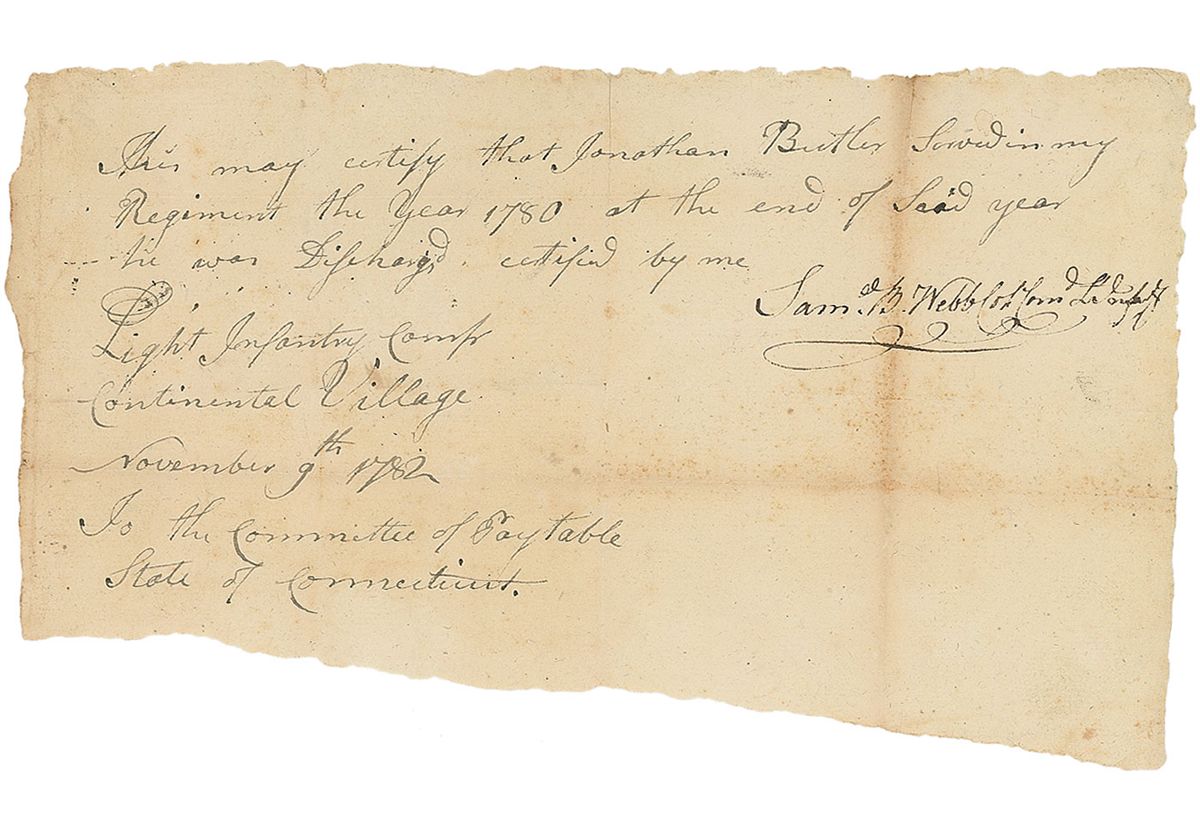 This may certify that Jonathan Butler Served in my
Regiment the Year 1780 at the end of Said year
he was Discharg'd. certified by me
Sam.el B. Webb Col. Com.d L.t Inf.y
Light Infantry Camp
Continental Village
November 9th 1782
To the Committee of Pay table
State of Connecticut.